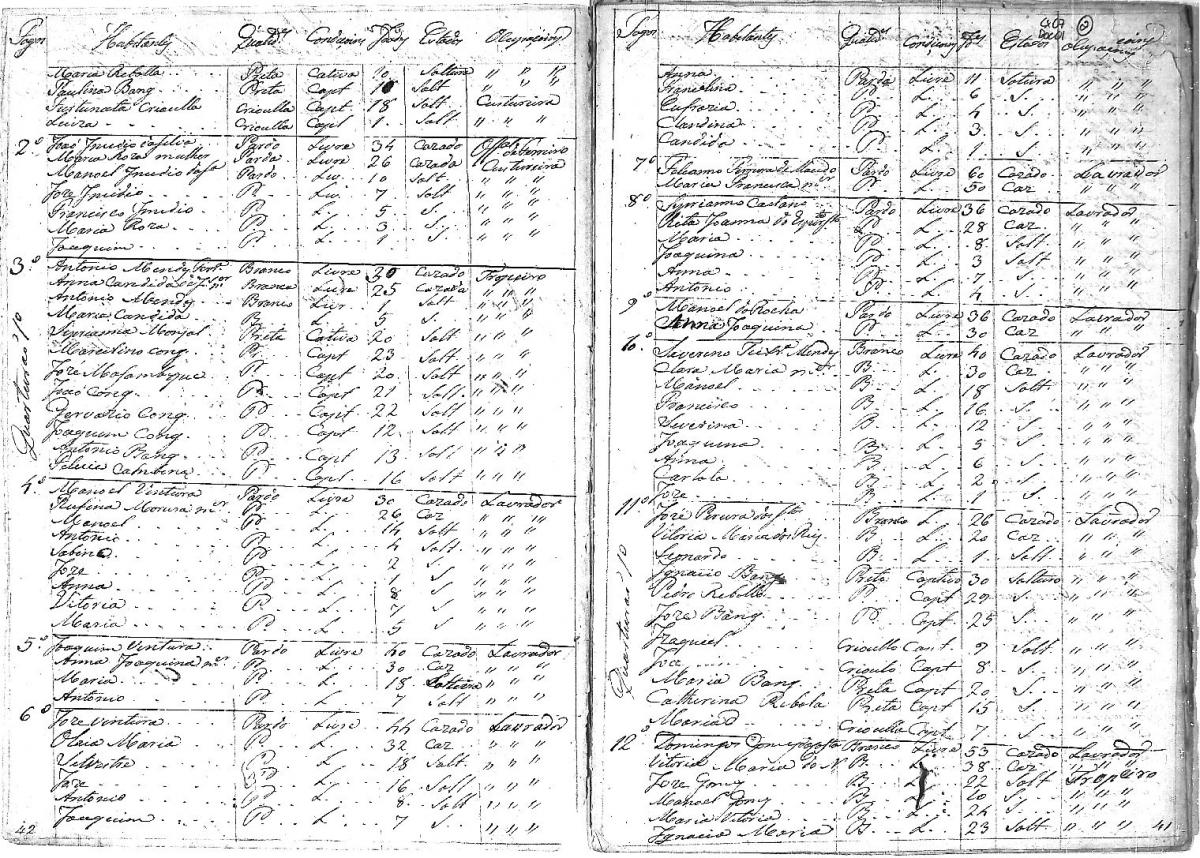 Fogos Habitantes Qualid.es Condições Id.es Estados Ocupaçoens
Maria Rebolla Preta Cativa 20 Solteira " " "
Paulina Bang. Preta Capt 18 Solt " " "
Furtunata Crioulla Crioulla Capt. 18 Solt. Custureira
Luiza Crioulla Capt. 1 Solt " " "
2.º João Pardo Livre 34 Cazado
Maria Roza mulher Parda Livre 26 Cazada Custureira
Manoel Pardo Liv. 10 Solt " " "
Joze P. Liv. 7 Solt " " "
Francisco P. L. 5 S. " " "
Maria Roza P. L. 3 S. " " "
Joaquim P. L. 1 S. " " "
3.º Antonio Mendes Branco Livre 30 Cazado Tropeiro
Anna Candida Branca Livre 25 Cazada " " "
Antonio Mendes Branco Livr. 1 Solt " " "
Maria Candida B. L. 5 S. " " "
Preta Cativa 20 Solt " " "
Marcelino Cong. P. Capt 23 Solt " " "
Joze Mosambique P. Capt 20 Solt " " "
João Cong. P. Capt 21 Solt " " "
Gervazio Cong. P. Capt 22 Solt " " "
Joaquim Cong. P. Capt 12 Solt " " "
Antonio Bang. P. Capt 13 Solt " " "
Cambina P. Capt. 16 Solt " " "
Quarteirão 1º
4.º Manoel Ventura Pardo Livre 30 Cazado Lavrador
Rufina P. L. 26 Caz " " "
Manoel P. L. 14 Solt " " "
Antonio P. L. 4 Solt. " " "
Sabina P. L. 2 S. " " "
Joze P. L. 1 S. " " "
Anna P. L. 8 S. " " "
Vitoria P. L. 7 S. " " "
Maria P. L. 5 S. " " "
5.º Joaquim Ventura Pardo Livre 40 Cazado Lavrador
Anna Joaquina m.er P. L. 30 Caz " " "
Maria P. L. 18 Solteira " " "
Antonio P. L. 7 Solt " " "
6.º Joze Ventura Pardo Livre 44 Cazado Lavrador
Olaia Maria P. L. 32 Caz " " "
Silvestre P. L. 18 Solt " " "
Joze P. L. 16 Solt " " "
Antonio P. L. 8 Solt " " "
Joaquim P. L. 7 S. " " "
42
Fogos Habitantes Qualid.es Condiçoens Id.es Estados Ocupaçoens
Anna Parda Livre 11 Solteira " " "
Franciolina P. L. 6 S. " " "
Eufrazia P. L. 4 S. " " "
Claudina P. L. 3 S. " " "
Candida P. L. 1 S. " " "
7.º Feliciano Ferreira de Macedo Pardo Livre 60 Cazado Lavrador
Maria Francisca m.er P. L. 50 Caz " " "
8.º Cyprianno Caetano Pardo Livre 36 Cazado Lavrador
Rita Joanna do P. L. 28 Caz " " "
Maria P. L. 8 Solt " " "
Joaquina P. L. 3 Solt " " "
Anna P. L. 7 S. " " "
Antonio P. L. 4 S. " " "
9.º Manoel da Rocha Pardo Livre 36 Cazado Lavrador
Anna Joaquina P. L. 30 Caz " " "
10.º Severino Mendes Branco Livre 40 Cazado Lavrador
Clara Maria m.er B. L. 30 Caz " " "
Manoel B. L. 18 Solt " " "
Francisco B. L. 16 S. " " "
Severina B. L. 12 S. " " "
Joaquina B. L. 5 S. " " "
Anna B. L. 6 S. " " "
Carlota B. L. 2 S. " " "
Joze B. L. 1 S. " " "
11.º Joze Pereira dos Stos Branco L. 26 Cazado Lavrador
Vitoria Maria dos Reys B. L. 20 Caz " " "
Leonardo B. L. 1 Solt " " "
Ignacio Bang Preto Captivo 30 Solteiro " " "
Pedro Rebollo P. Capt 29 S. " " "
Joze Bang. P. Capt 25 S. " "
Quarteirão 1º
Ezaquiel Crioullo Capt. 9 Solt " " "
Joa Crioulo Capt 8 S. " " "
Maria Bang. Preta Capt 20 S. " " "
Catherina Rebola Preta Capt 15 S. " " "
Maria Crioulla Capt 7 S. " " "
12.º Domingos Branco Livre 53 Cazado Lavrador
Vitoria Maria do N. B. L. 38 Caz " " "
Joze Gomes B. L. 22 Solt Tropeiro
Manoel Gomes B. L. 20 S. " " "
Maria Vitoria B. L. 24 S. " " "
Ignacia Maria B. L. 23 Solt " " "
41